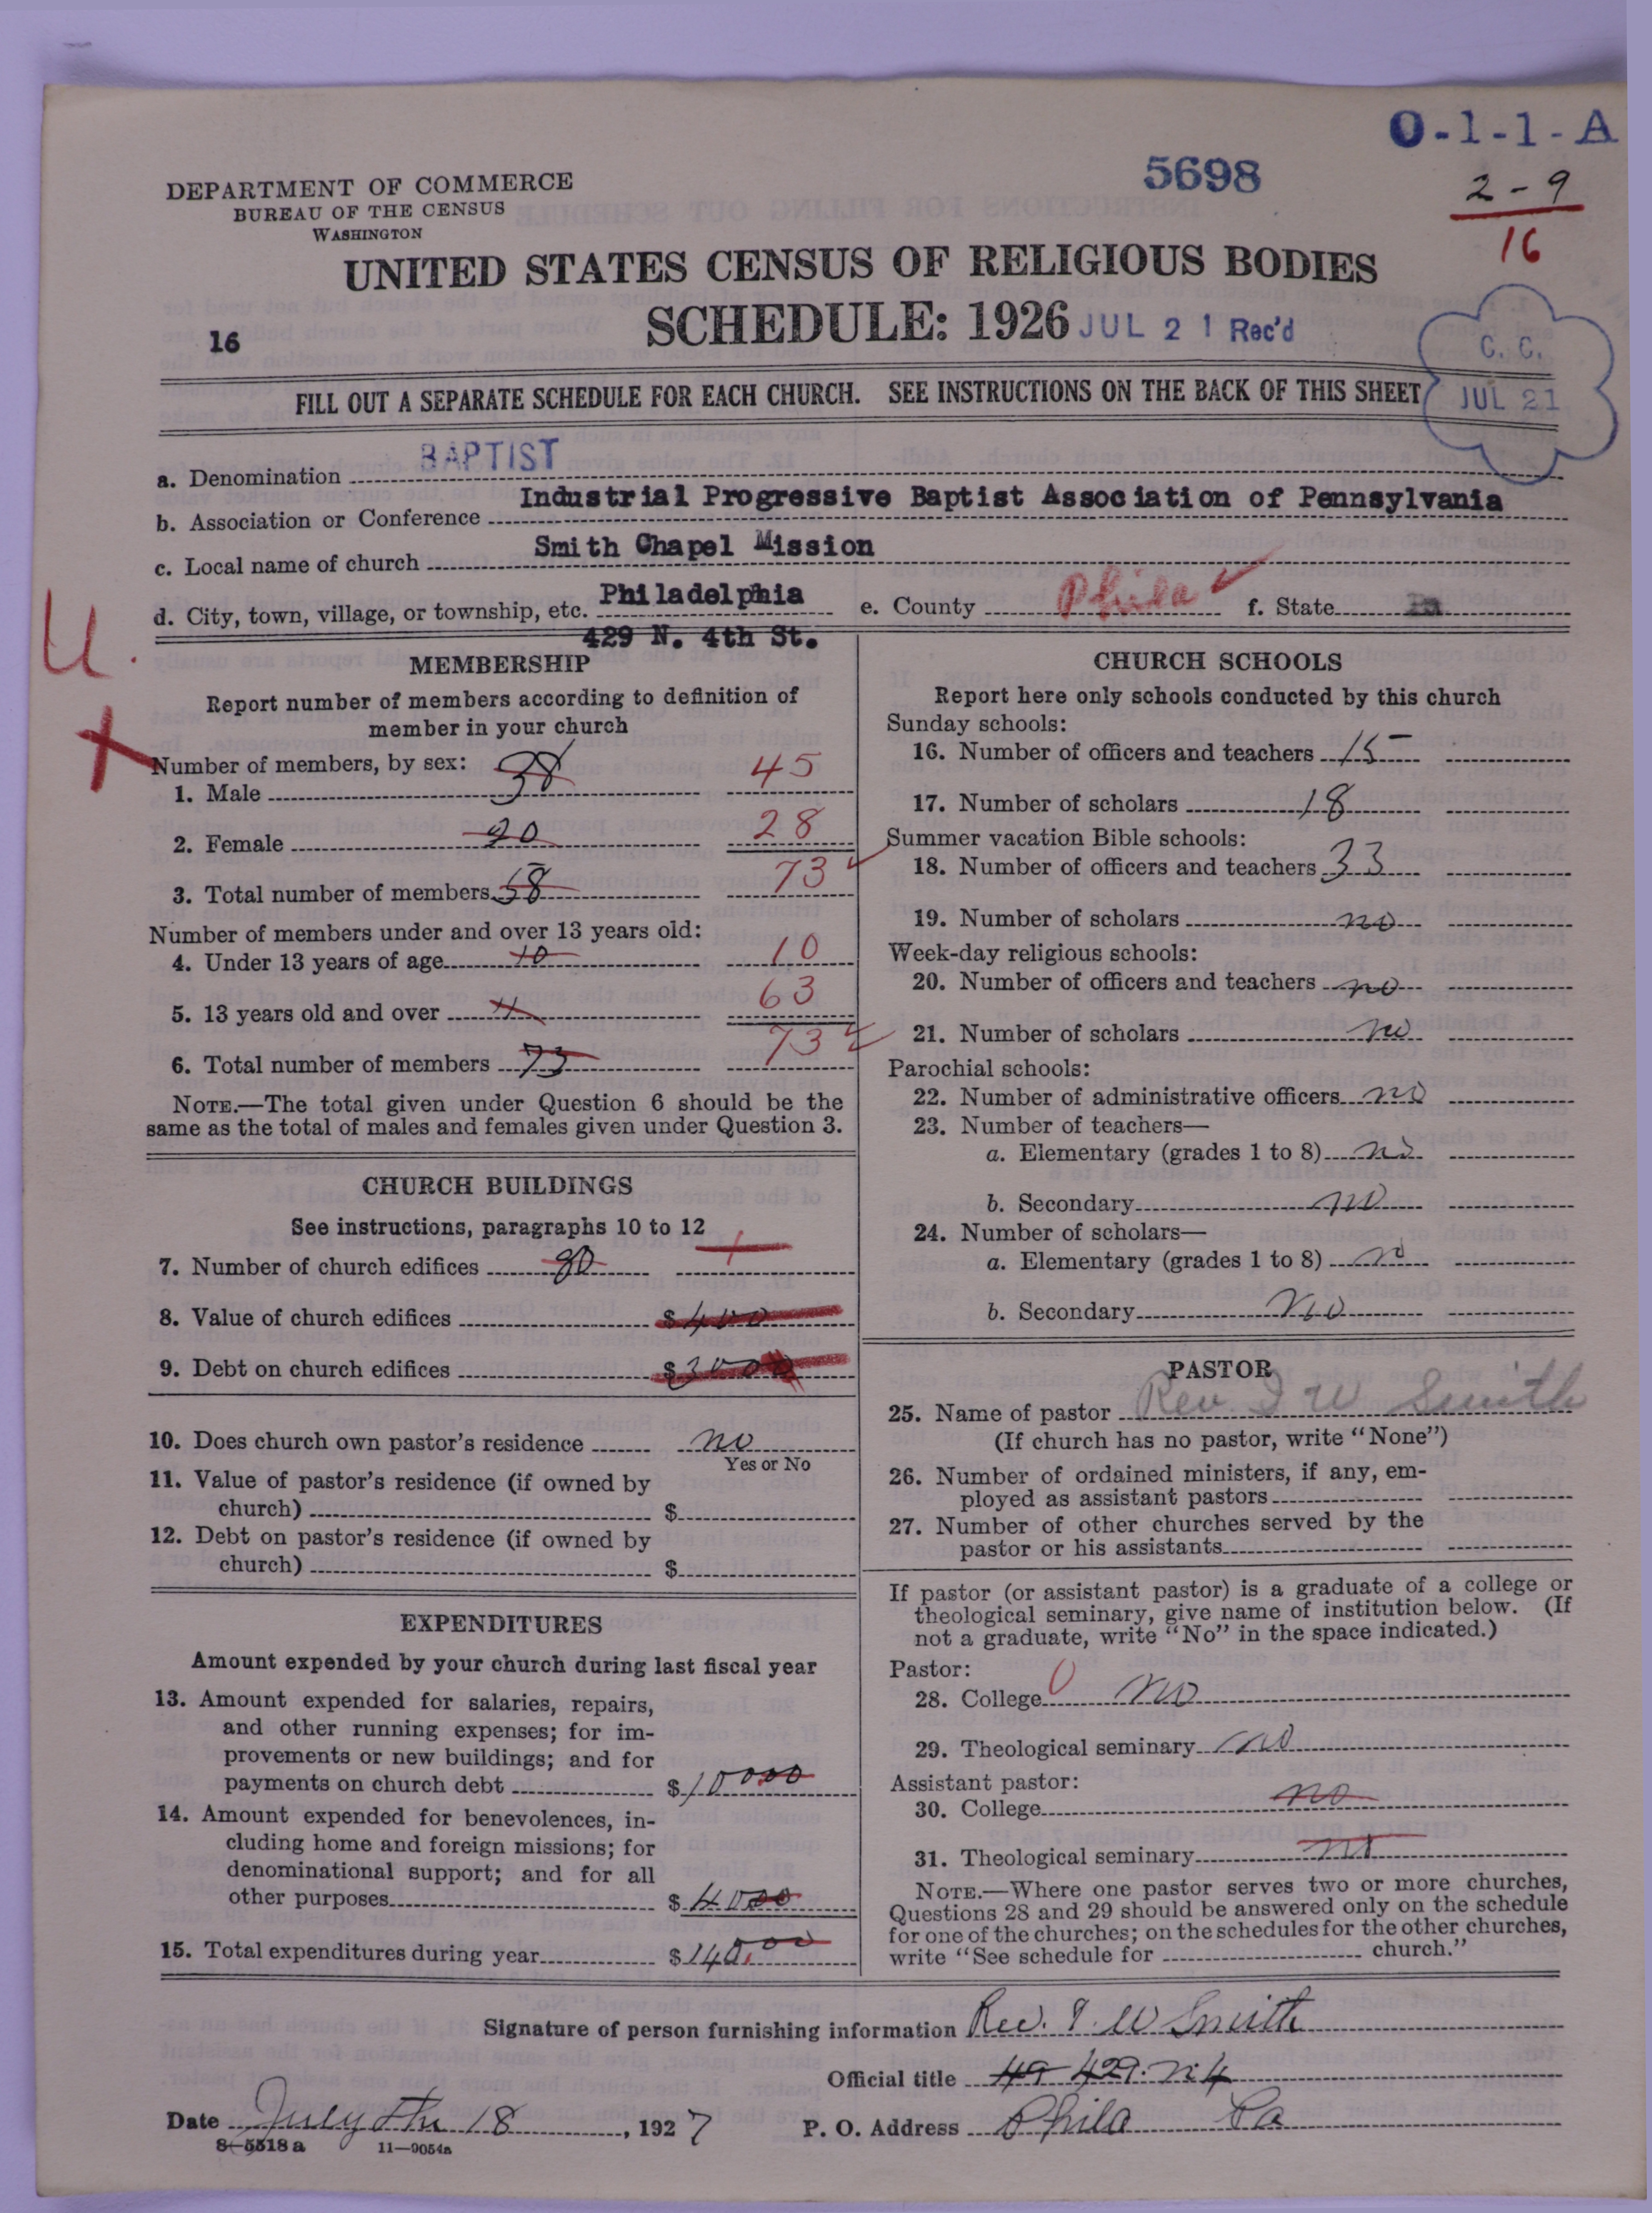 O-1-1-A
5698
2-9
16
DEPARTMENT OF COMMERCE
BUREAU OF THE CENSUS
WASHINGTON
UNITED STATES CENSUS OF RELIGIOUS BODIES
16
SCHEDULE: 1926 JUL 21 Rec'd
C. C.
JUL 21
FILL OUT A SEPARATE SCHEDULE FOR EACH CHURCH. SEE INSTRUCTIONS ON THE BACK OF THIS SHEET
a. Denomination BAPTIST
b. Association or Conference Industrial Progressive Baptist Association of Pennsylvania
c. Local name of church Smith Chapel Mission
d. City, town, village, or township, etc. Philadelphia e. County Phila f. State Pa
429 N. 4th St.
U.
MEMBERSHIP
Report number of members according to definition of
member in your church
Number of members, by sex:
1. Male 38 45
2. Female 20 28
3. Total number of members 58 73
Number of members under and over 13 years old:
4. Under 13 years of age 10 10
5. 13 years old and over 63
6. Total number of members 73 73
NOTE.—The total given under Question 6 should be the
same as the total of males and females given under Question 3.
CHURCH BUILDINGS
See instructions, paragraphs 10 to 12
7. Number of church edifices
8. Value of church edifices $400
9. Debt on church edifices $3000
10. Does church own pastor's residence no
Yes or No
11. Value of pastor's residence (if owned by
church) $
12. Debt on pastor's residence (if owned by
church) $
EXPENDITURES
Amount expended by your church during last fiscal year
13. Amount expended for salaries, repairs,
and other running expenses; for im-
provements or new buildings; and for
payments on church debt $10000
14. Amount expended for benevolences, in-
cluding home and foreign missions; for
denominational support; and for all
other purposes $4000
15. Total expenditures during year $140.00
CHURCH SCHOOLS
Report here only schools conducted by this church
Sunday schools:
16. Number of officers and teachers 15
17. Number of scholars 18
Summer vacation Bible schools:
18. Number of officers and teachers 33
19. Number of scholars no
Week-day religious schools:
20. Number of officers and teachers no
21. Number of scholars no
Parochial schools:
22. Number of administrative officers no
23. Number of teachers—
a. Elementary (grades 1 to 8) no
b. Secondary no
24. Number of scholars—
a. Elementary (grades 1 to 8) no
b. Secondary no
PASTOR
25. Name of pastor Rev. I W Smith
(If church has no pastor, write "None")
26. Number of ordained ministers, if any, em-
ployed as assistant pastors
27. Number of other churches served by the
pastor or his assistants
If pastor (or assistant pastor) is a graduate of a college or
theological seminary, give name of institution below. (If
not a graduate, write "No" in the space indicated.)
Pastor:
28. College 0 no
29. Theological seminary no
Assistant pastor:
30. College no
31. Theological seminary no
NOTE.—Where one pastor serves two or more churches,
Questions 28 and 29 should be answered only on the schedule
for one of the churches; on the schedules for the other churches,
write "See schedule for church."
Signature of person furnishing information Rev. I. W Smith
Official title 49 429. N. 4
Date July the 18, 1927 P. O. Address Phila Pa
8-5518a 11-9054a